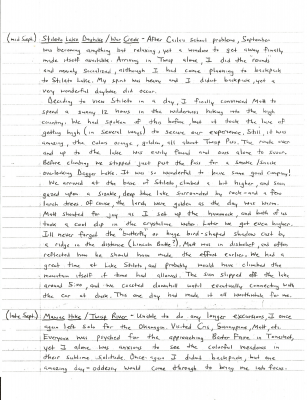 (mid Sept.) Stiletto Lake Daytrip / War Creek - After Cailin's school problems, September
was becoming anything but relaxing, yet a window to get away finally
made itself available. Arriving in Twisp alone, I did the rounds
and mainly socialized, although I had come planning to backpack
to Stiletto Lake. My spirit was heavy and I didn't backpack, yet a
very wonderful daytrip did occur.
Deciding to visit Stiletto in a day, I finally convinced Matt to
spend a sunny 12 hours in the wilderness hiking into the high
country. We had spoken of this before, but it took the lure of
getting high (in several ways) to secure our experience. Still, it was
amazing, the colors orange, golden, all about Twisp Pass. The trail over
and up to the lake was easily found and even alone to occur.
Before climbing we stopped just past the Pass for a smoke / snack
overlooking Dagger Lake. It was so wonderful to have some good company!
We arrived at the base of Stiletto, climbed a bit higher, and soon
gazed upon a sizable, deep blue lake surrounded by rock - and a few
larch trees. Of course, the larch were golden as the day were warm.
Matt shouted for joy as I set up the hammock, and both of us
took a cool dip in the crystalline water. Later we got even higher.
I'll never forget the butterfly, or huge bird-shaped shadow cast by
a ridge in the distance (Lincoln Butte?). Matt was in disbelief, and often
reflected how he should have made the effort earlier. We had a
great time at Lake Stiletto, and probably would have climbed the
mountain itself if time had allowed. The sun slipped off the lake
around 5:00, and we coasted downhill until eventually connecting with
the car at dusk. This one day had made it all worthwhile for me.
(late Sept.) Meadow Hike / Twisp River - Unable to do any longer excursions, I once
again left solo for the Okanogan. Visited Cris, Sunnypine, Matt, etc.
Everyone was psyched for the approaching Barter Faire in Tonasket,
yet I alone was anxious to see the colorful meadows in
their sublime solitude. Once again I didn't backpack, but one
amazing day-oddessy would come through to bring me into focus.